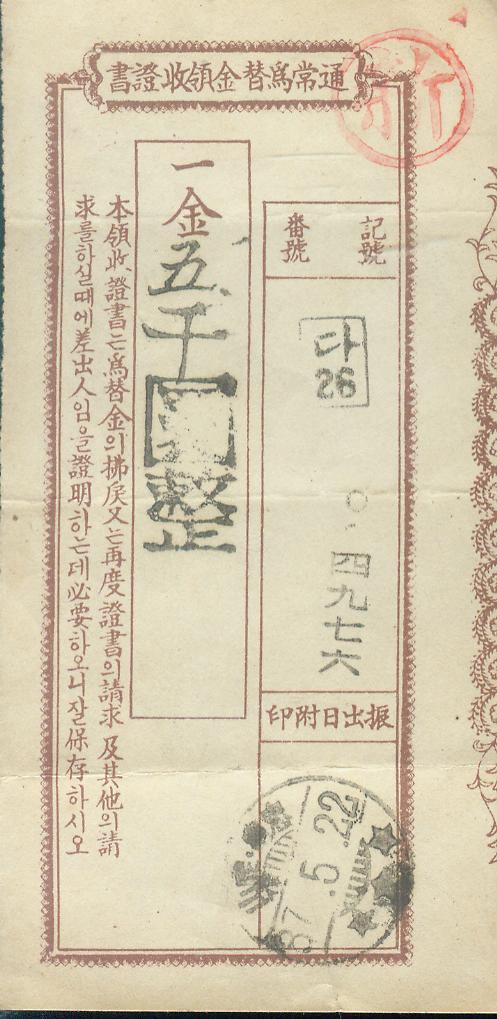 通常爲替金領收證書
記號
番號
다
26
○四九七六
振出日附印
87.5.22
一金五千圜整
本領收證書는爲替金의拂戾又는再度證書의請求及其他의請
求를하실때에差出人임을證明하는데必要하오니잘保存하시오